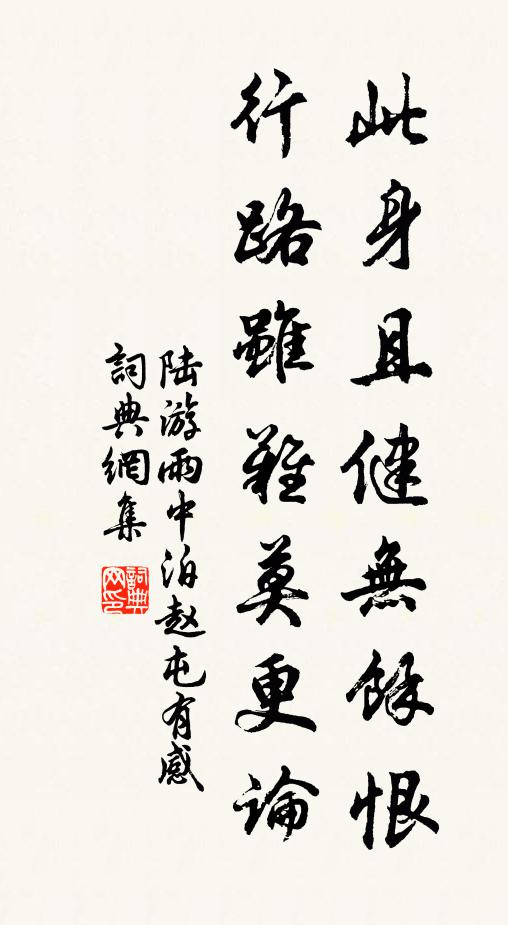 此身且健無餘恨
行路雖難莫更論
陸游雨中泊趙屯有感
詞典網集
詞典网印